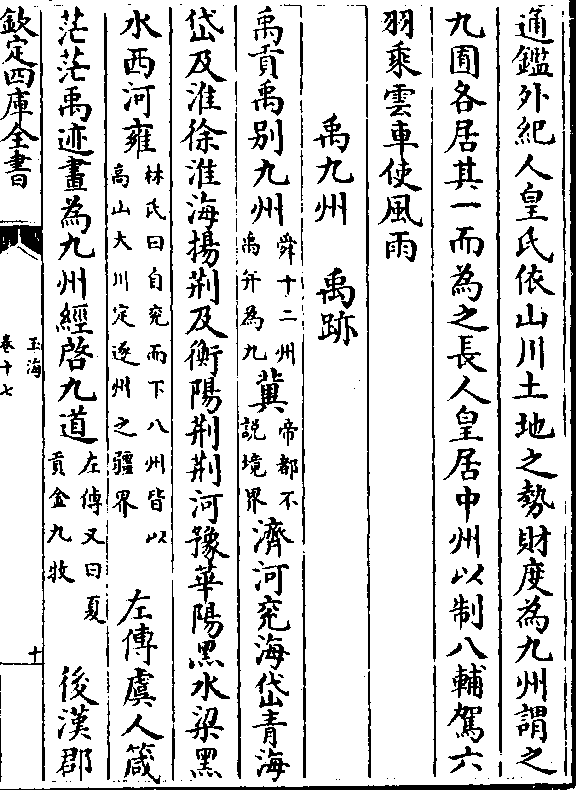 通鑑外紀人皇氏依山川土地之勢財度為九州謂之
九囿各居其一而為之長人皇居中州以制八輔駕六
羽乘雲車使風雨
禹九州　禹跡
禹貢禹别九州舜十二州禹并為九冀帝都不説境界濟河兖海岱青海
岱及淮徐淮海揚荆及衡陽荆荆河豫華陽黑水梁黑
水西河雍林氏曰自兖而下八州皆以高山大川定逐州之疆界　左傳虞人箴
茫茫禹迹畫為九州經啓九道左傳又曰夏貢金九牧　後漢郡
欽定四庫全書
玉海
卷十七
十